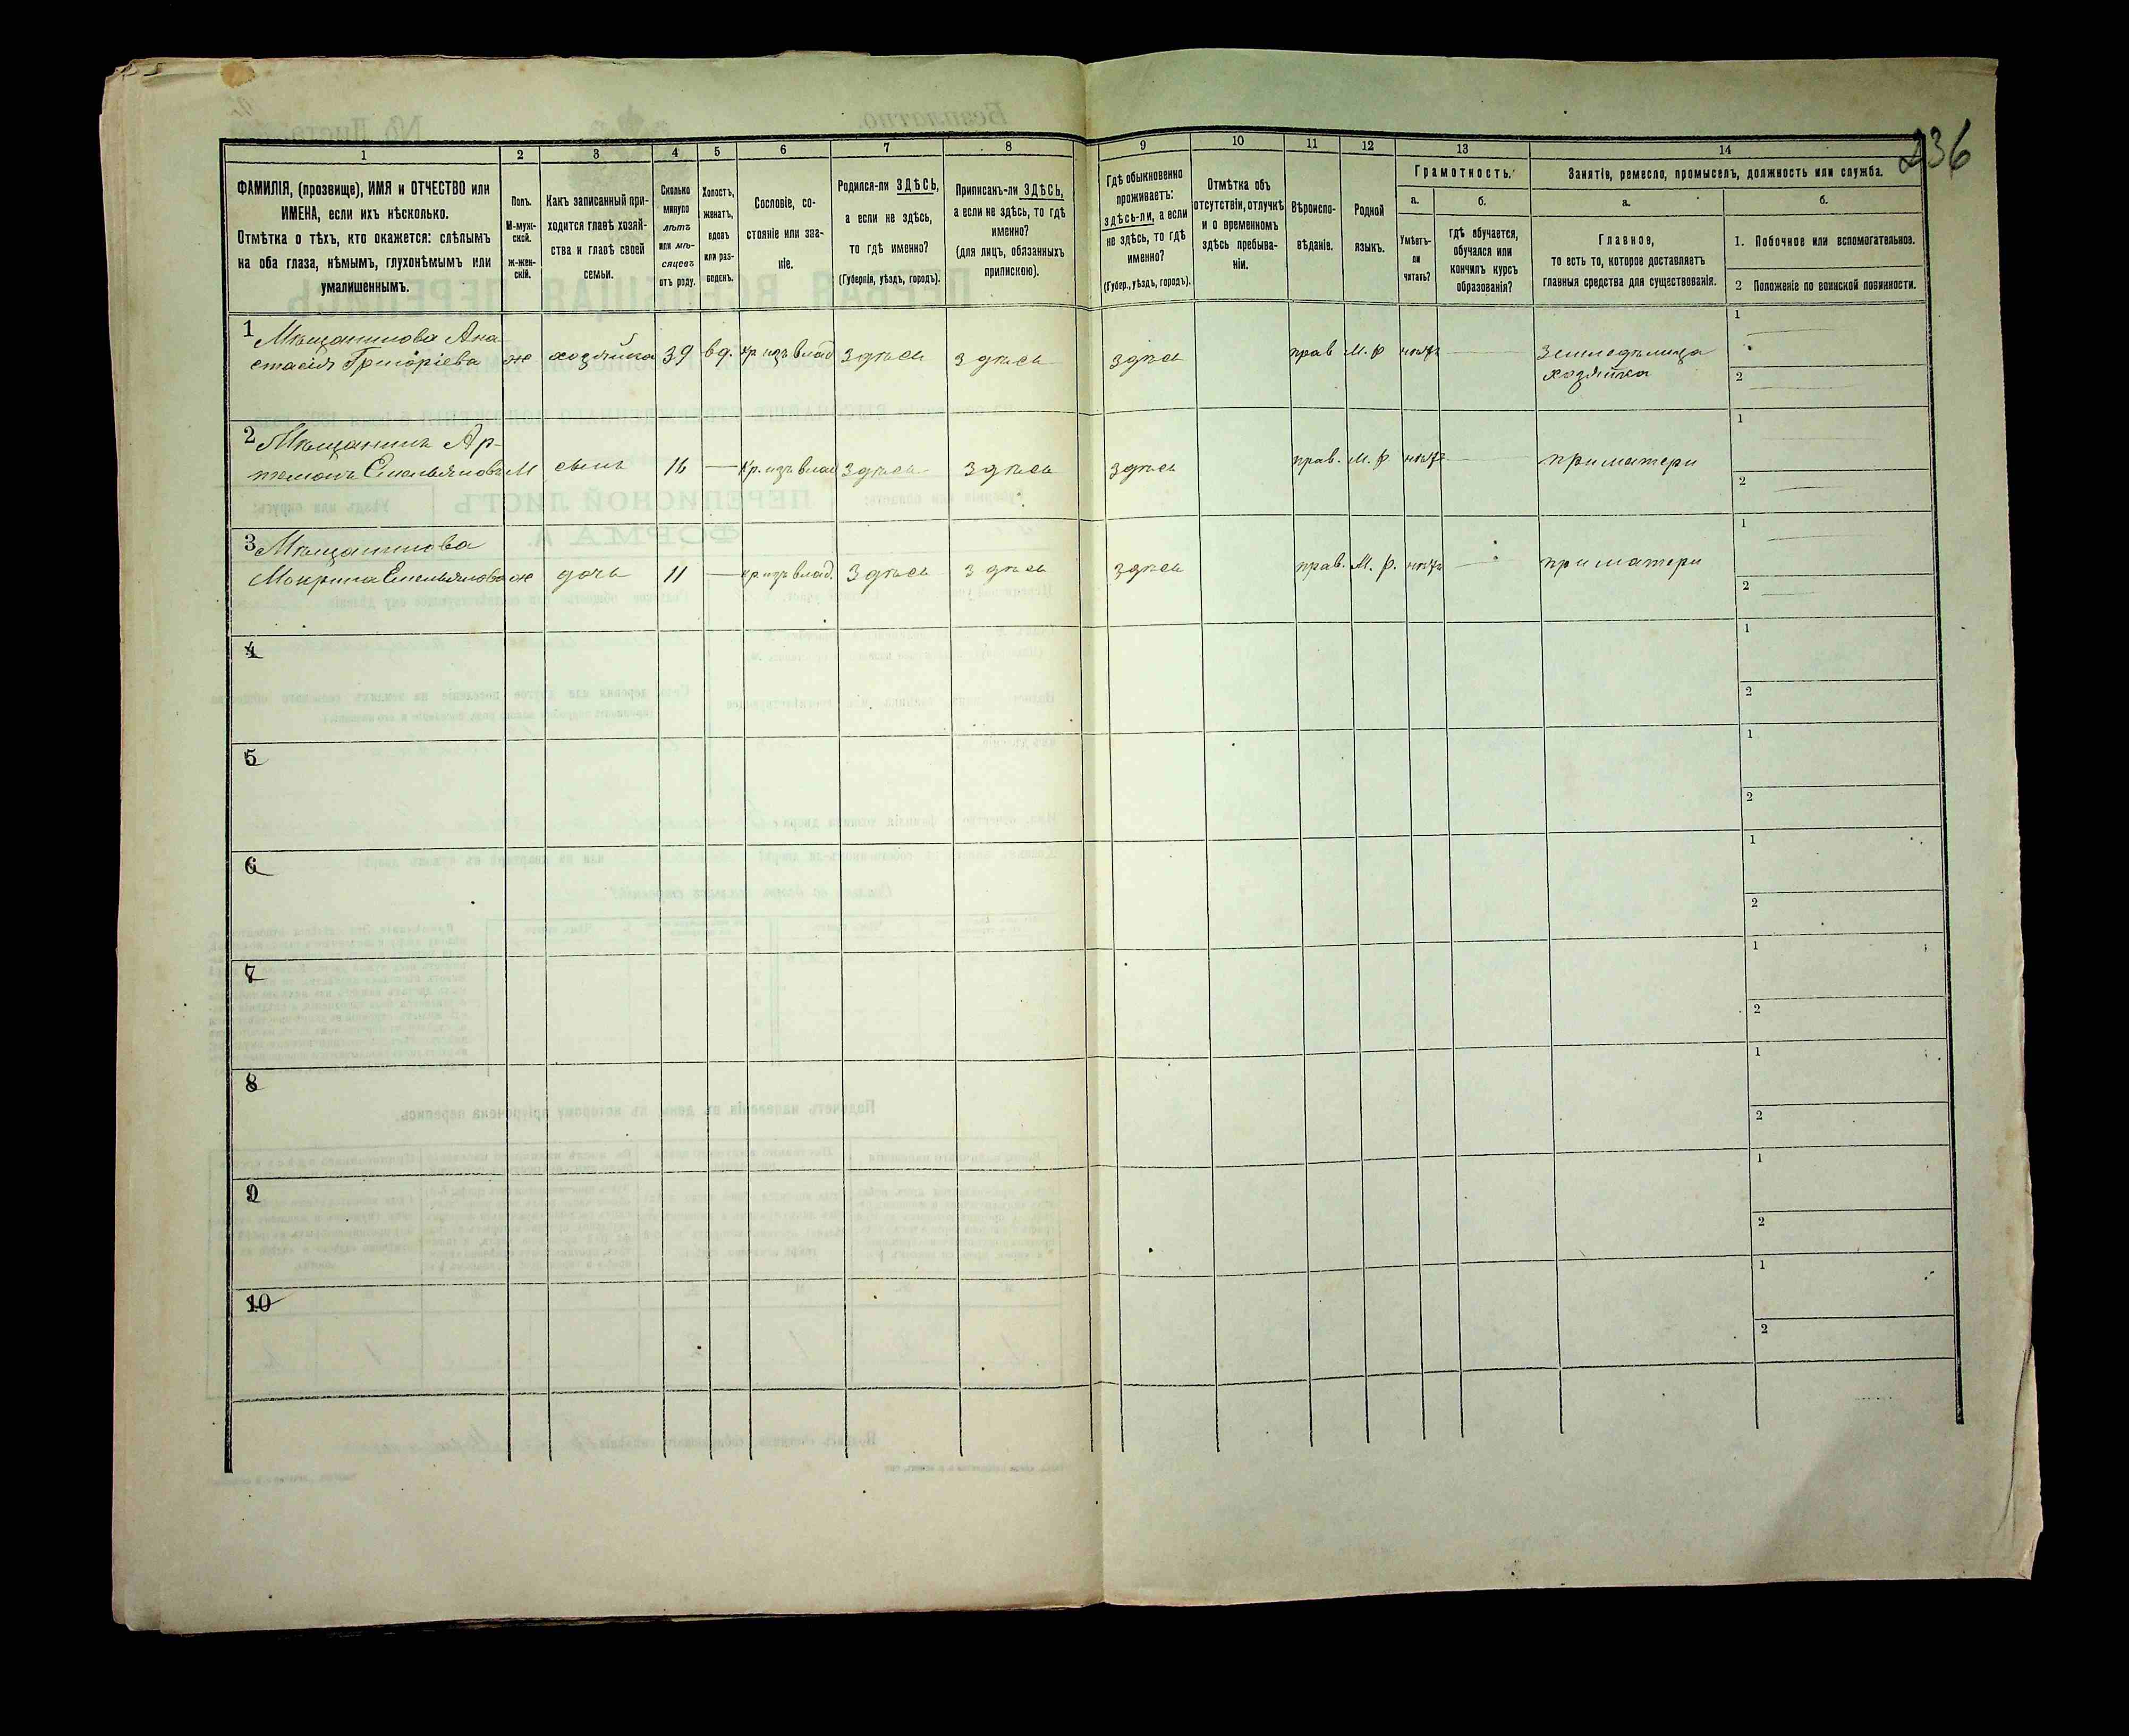 236
1
2
3
4
5
6
7
8
9
10
11
12
13
14
ФАМИЛІЯ, (прозвище), ИМЯ и ОТЧЕСТВО или
ИМЕНА, если ихъ нѣсколько.
Отмѣтка о тѣхъ, кто окажется: слѣпымъ
на оба глаза, нѣмымъ, глухонѣмымъ или
умалишеннымъ.
Полъ.
М-муж-
ской.
Ж-жен-
скій.
Какъ записанный при-
ходится главѣ хозяй-
ства и главѣ своей
семьи.
Сколько
минуло
лѣтъ
или мѣ-
сяцевъ
отъ роду.
Холостъ,
женатъ,
вдовъ
или раз-
веденъ.
Сословіе, со-
стояніе или зва-
ніе.
Родился-ли ЗДѢСЬ,
а если не здѣсь,
то гдѣ именно?
(Губернія, уѣздъ, городъ).
Приписанъ-ли ЗДѢСЬ,
а если не здѣсь, то гдѣ
именно?
(для лицъ, обязанныхъ
припискою).
Гдѣ обыкновенно
проживаетъ:
здѣсь-ли, а если
не здѣсь, то гдѣ
именно?
(Губер., уѣздъ, городъ).
Отмѣтка объ
отсутствіи, отлучкѣ
и о временномъ
здѣсь пребыва-
ніи.
Вѣроиспо-
вѣданіе.
Родной
языкъ.
Грамотность.
а.
Умѣетъ-
ли
читать?
б.
гдѣ обучается,
обучался или
кончилъ курсъ
образованія?
Занятіе, ремесло, промыселъ, должность или служба.
а.
Главное,
то есть то, которое доставляетъ
главныя средства для существованія.
б.
1. Побочное или вспомогательное.
2 Положеніе по воинской повинности.
1 Мѣщанинова Ана-
стасія Григоріева ж хозяйка 39 вд. кр. изъ влад здѣсь здѣсь здѣсь прав М. р нѣтъ Земледѣлица
хозяйка
1
2
2 Мѣщанинъ Ар-
темонъ Емельяновъ М сынъ 16 кр. изъ влад здѣсь здѣсь здѣсь прав. М. р нѣтъ при матери
1
2
3 Мѣщанинова
Мокрина Емельянова ж дочь 11 кр. изъ влад. здѣсь здѣсь здѣсь прав. М. р. нѣтъ при матери
1
2
4
1
2
5
1
2
6
1
2
7
1
2
8
1
2
9
1
2
10
1
2